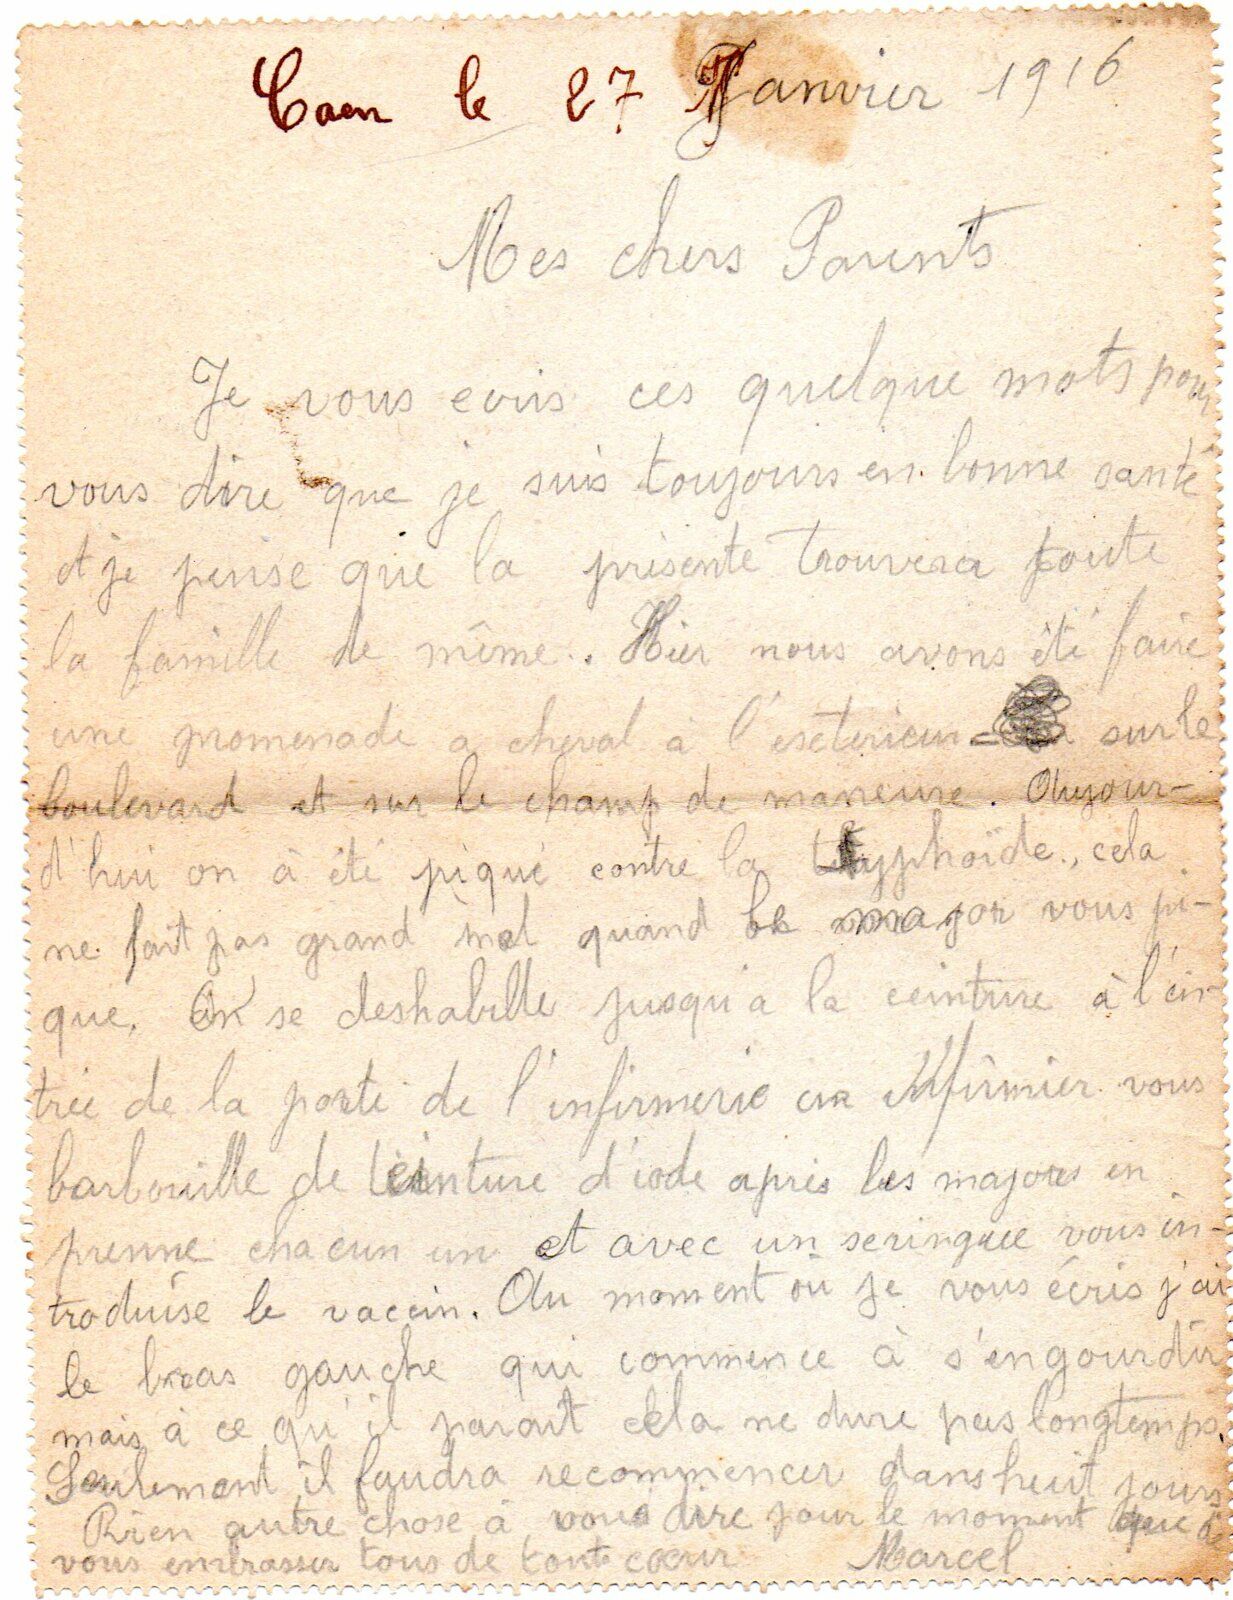 Caen le 27 Janvier 1916
Mes chers Parents
Je vous ecris ces quelque mots pour
vous dire que je suis toujours en bonne santé
et je pense que la présente trouvera toute
la famille de même. Hier nous avons été faire
une promenade a cheval à l'esctérieur sur le
boulevard et sur le champ de maneuvre. Aujour-
d'hui on à été piqué contre la typhoïde, cela
ne fait pas grand mal quand le major vous pi-
que. On se deshabille jusqu'a la ceinture à l'en-
trée de la porte de l'infirmerie un infirmier vous
barbouille de teinture d'iode après les majors en
prenne chacun un et avec un seringue vous in-
troduise le vaccin. Au moment où je vous écris j'ai
le bras gauche qui commence à s'engourdir
mais à ce qu'il parait cela ne dure pas longtemps.
Seulement il faudra recommencer dans huit jours
Rien autre chose à vous dire pour le moment que de
vous embrasser tous de tout cœur Marcel